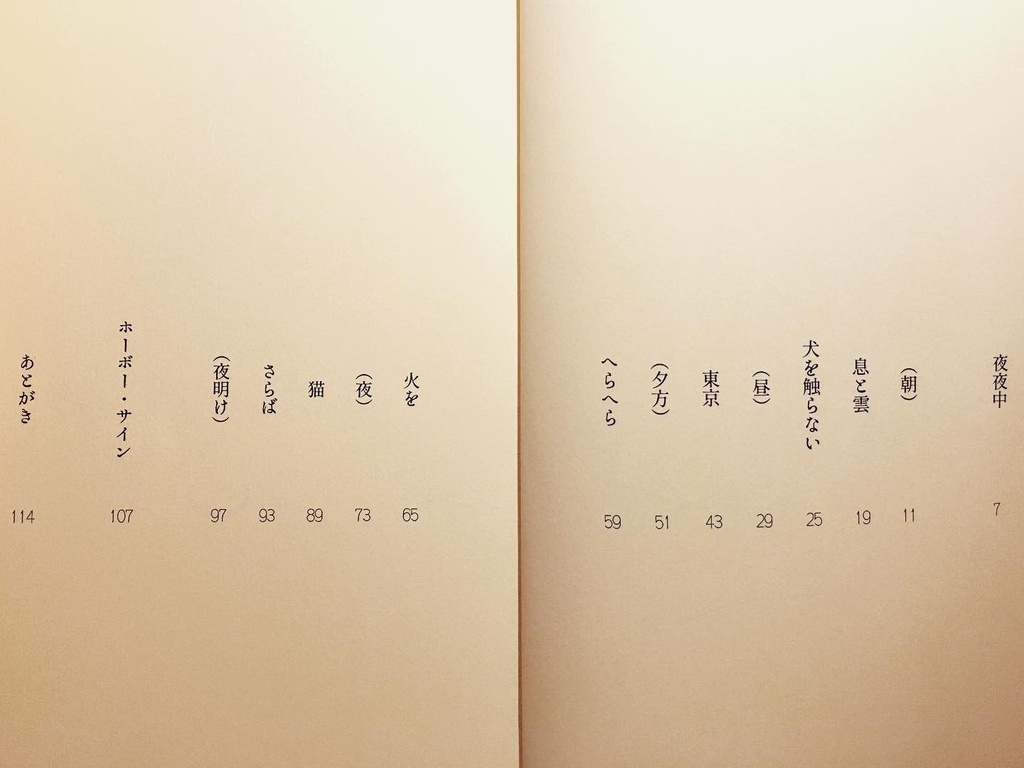 夜夜中 7
(朝) 11
息と雲 19
犬を触らない 25
(昼) 29
東京 43
(夕方) 51
へらへら 59
火を 65
(夜) 73
猫 89
さらば 93
(夜明け) 97
ホーボー・サイン 107
あとがき 114